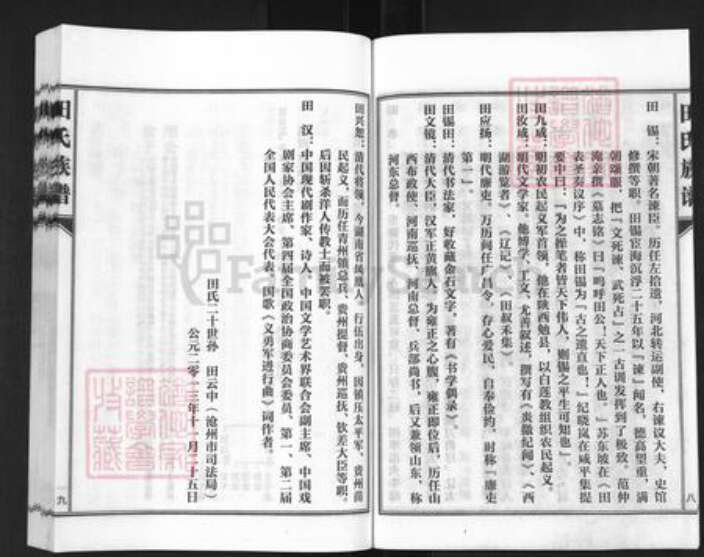 田氏族谱
田　锡：宋朝著名谏臣。历任左拾遗，河北转运副使，右谏议大夫，史馆
修撰等职。田锡宦海沉浮二十五年以『谏』闻名，德高望重，满
朝颂服，把『文死谏，武死占』之一古训发挥到了极致。范仲
淹亲撰《墓志铭》曰『呜呼田公！天下正人也。』苏东坡在《田
表圣奏议序》中，称田锡为『古之遗直也！』纪晓岚在咸平集提
要中曰，『为之操笔者皆天下伟人，则锡之平生可知也』。
田九成：明初农民起义军首领，他在陕西勉县，以白莲教组织农民起义。
田汝成：明代文学家。他博学，工文，尤善叙述，撰写有《炎徼纪闻》、《西
湖游览者》、《辽记》、《田叔禾集》
田应扬：明代廉吏。万历间任广昌令，存心爱民，自奉俭约，时称『廉吏
第一』。
田锡田：清代书法家。好收藏金石文字，著有《书学偶录》。
田文镜：清代大臣。汉军正黄旗人。为雍正之心腹，雍正即位后，历任山
西布政使、河南巡抚、河南总督、兵部尚书，后又兼领山东，称
河东总督。
八
田氏族谱
田兴恕：清代将领。今湖南省凤凰人。行伍出身，因镇压太平军、贵州苗
民起义，而历任青州镇总兵、贵州提督、贵州巡抚、钦差大臣等职。
后因斩杀洋人传教士而被罢职。
田　汉：中国现代剧作家、诗人。中国文学艺术界联合会副主席、中国戏
剧家协会主席、第四届全国政治协商委员会委员、第一、第二届
全国人民代表大会代表。国歌《义勇军进行曲》词作者。
田氏二十世孙　田云中（沧州市司法局）
公元二零一三年十一月二十五日
一九
FamilySearch